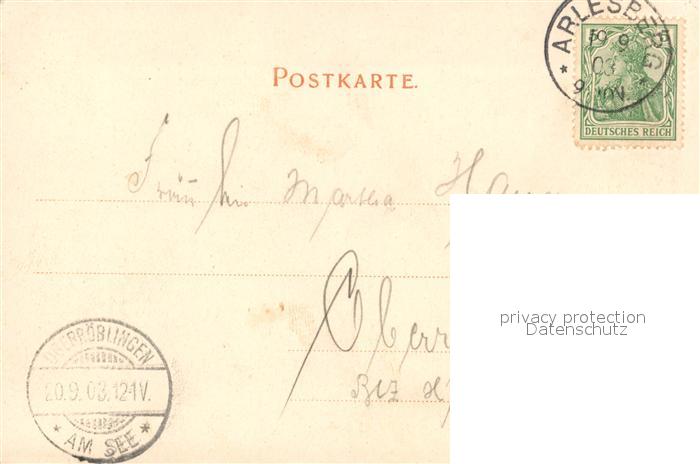 ARLESBERG
19 9
03
9-10V.
DEUTSCHES REICH
POSTKARTE.
Fräulein Martha
Oberr
privacy protection
Datenschutz
OBERRÖBLINGEN
20.9.03.12-1V.
* AM SEE *